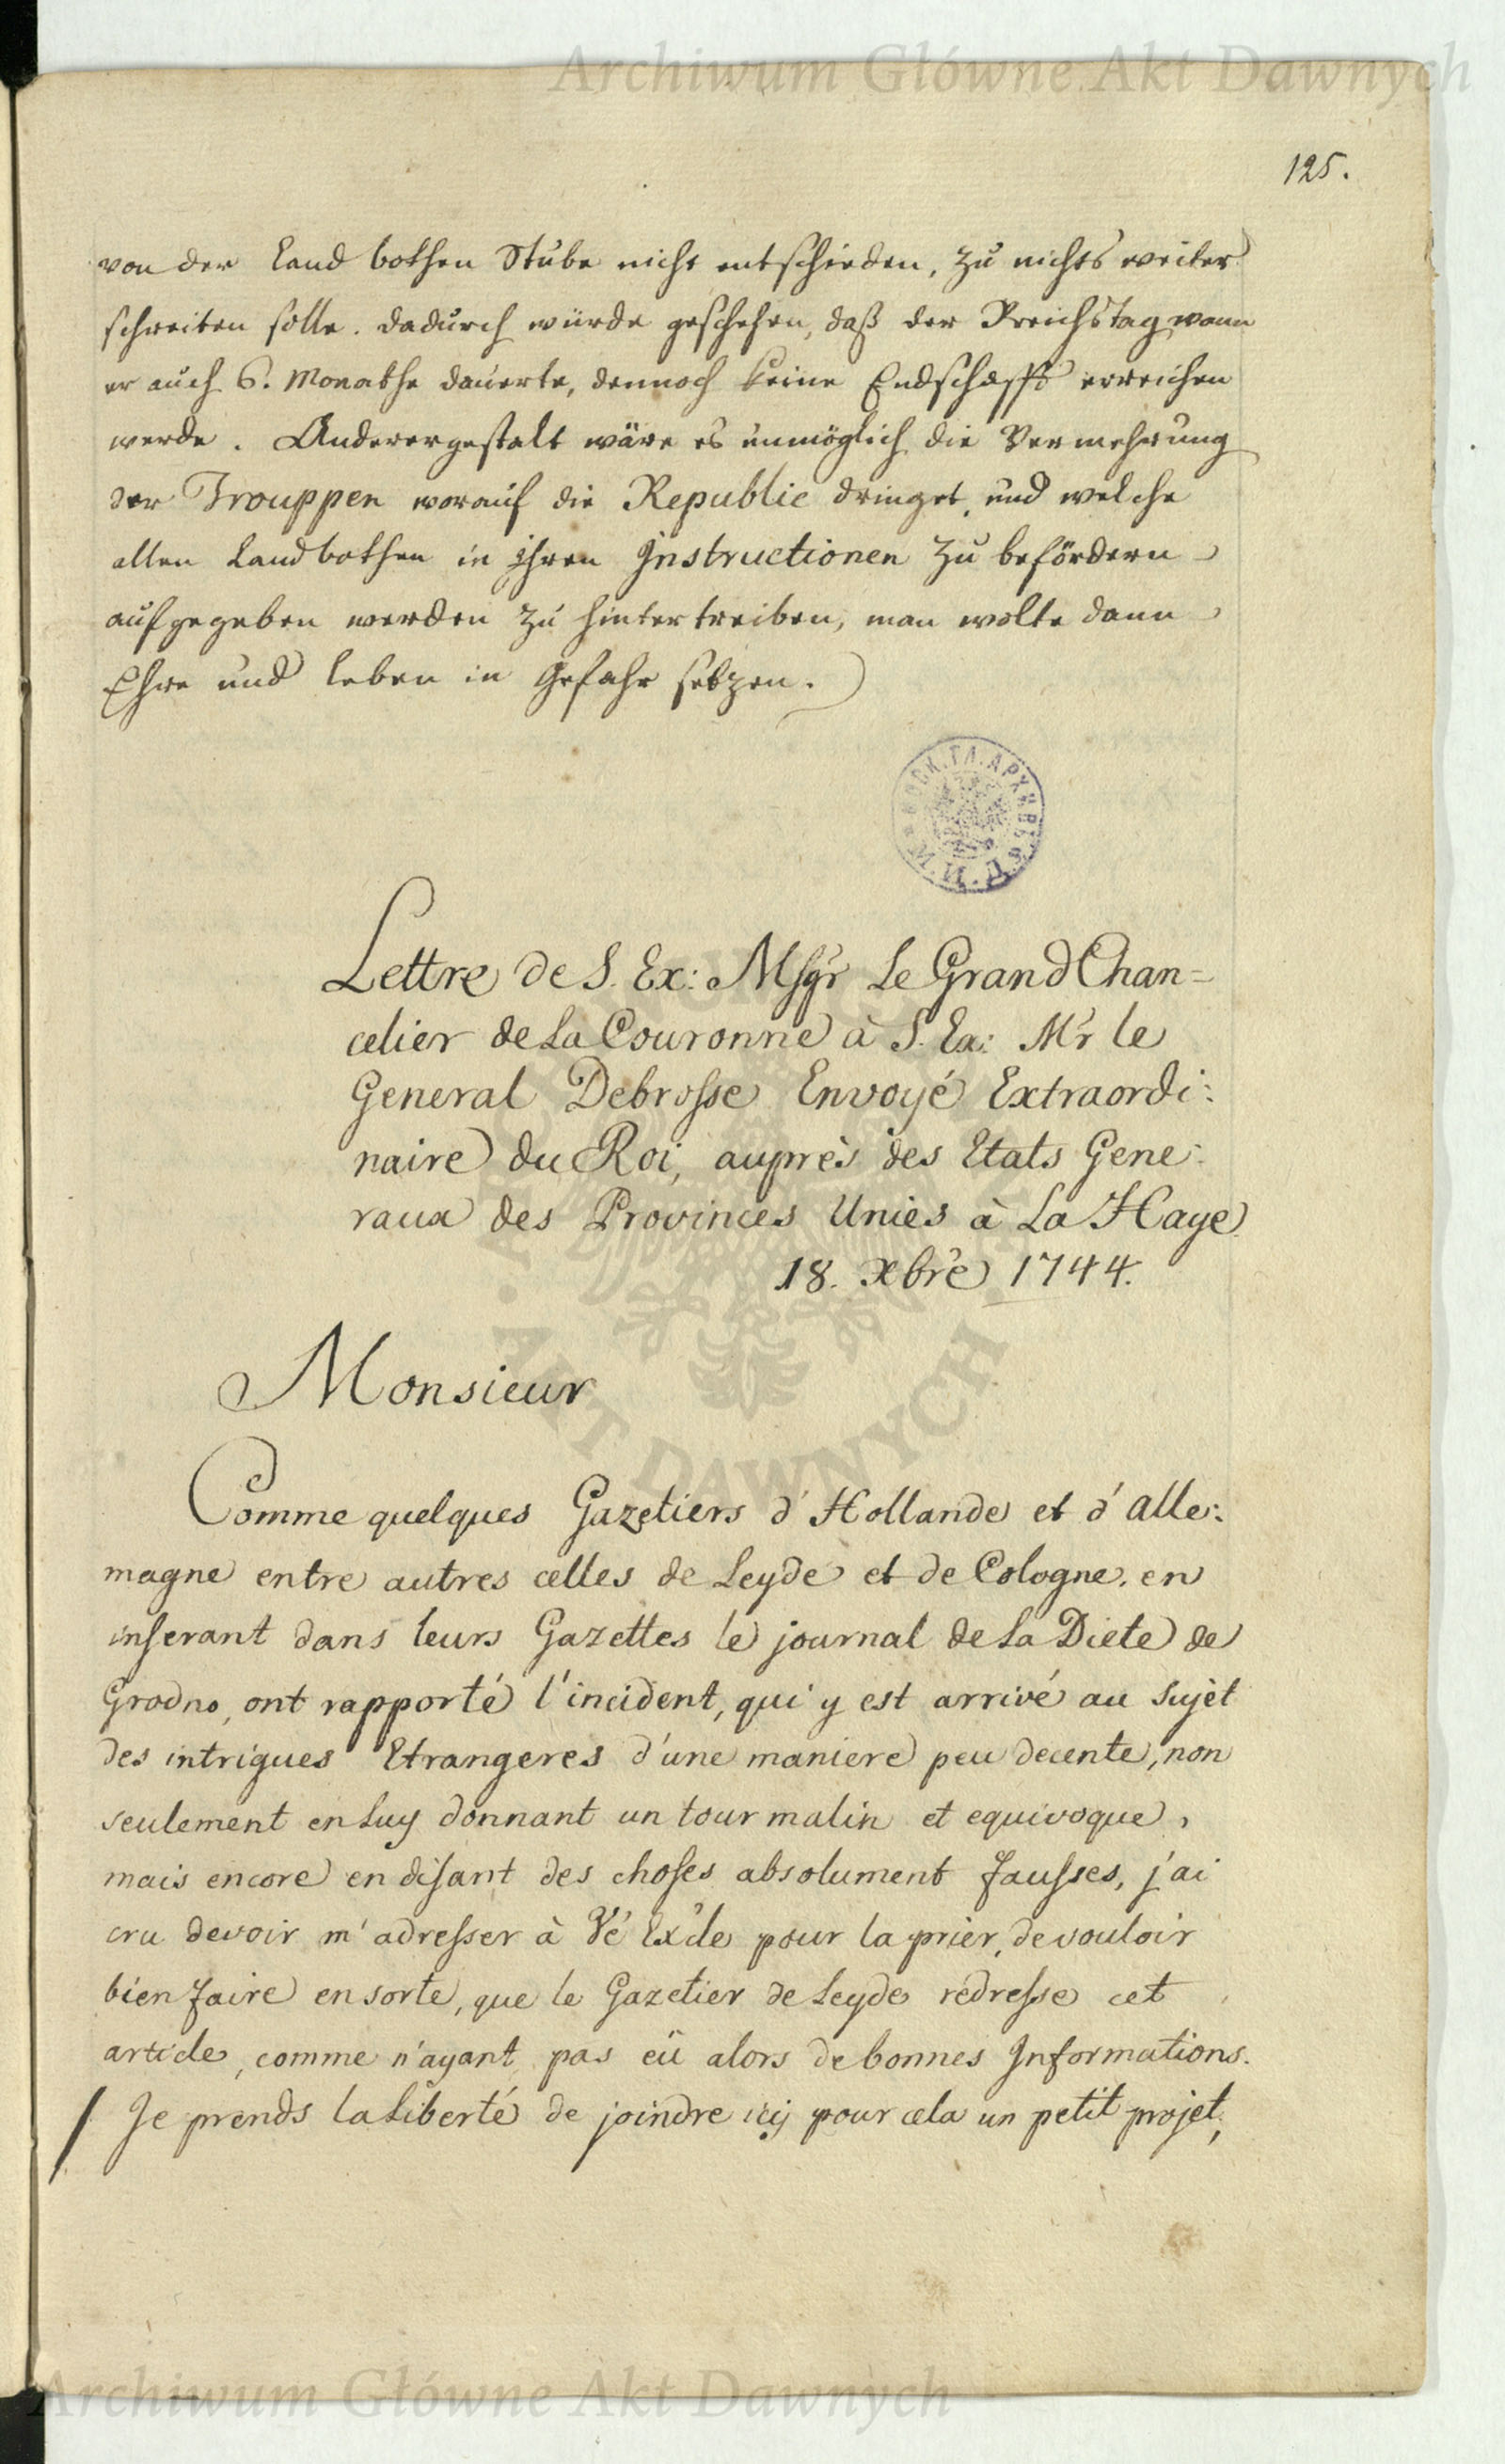 Archiwum Główne Akt Dawnych
125.
von der Land bothen Stube nicht entschieden, zu nichts weiter
schreiten solle. dadurch würde geschehen, daß der Reichstag wann
er auch 6. Monathe dauerte, dennoch keine Endschafft erreichen
werde. Anderergestalt wäre es unmöglich die Vermehrung
der Trouppen worauf die Republic dringet, und welche
allen Landbothen in ihren Instructionen zu befördern
aufgegeben werden zu hintertreiben, man wolte dann
Ehre und Leben in Gefahr setzen.
Lettre de S. Ex: Msgr Le Grand Chan=
celier de La Couronne à S. Ex: Mr le
General Debrosse Envoyé Extraordi:
naire du Roi, auprès des Etats Gene:
raux des Provinces Unies à La Haye
18. Xbre 1744.
Monsieur
Comme quelques Gazetiers d'Hollande et d'Alle:
magne entre autres celles de Leyde et de Cologne, en
inserant dans leurs Gazettes le journal de La Diete de
Grodno, ont rapporté l'incident, qui y est arrivé au sujet
des intrigues Etrangeres d'une maniere peu decente, non
seulement en Luy donnant un tour malin et equivoque,
mais encore en disant des choses absolument fausses, j'ai
cru devoir m'adresser à Vé Ex'le pour la prier, de vouloir
bien faire en sorte, que le Gazetier de Leyde redresse cet
article, comme n'ayant pas eü alors de bonnes Informations.
Je prends la Liberté de joindre icy pour cela un petit projet,
AKT DAWNYCH
Archiwum Główne Akt Dawnych